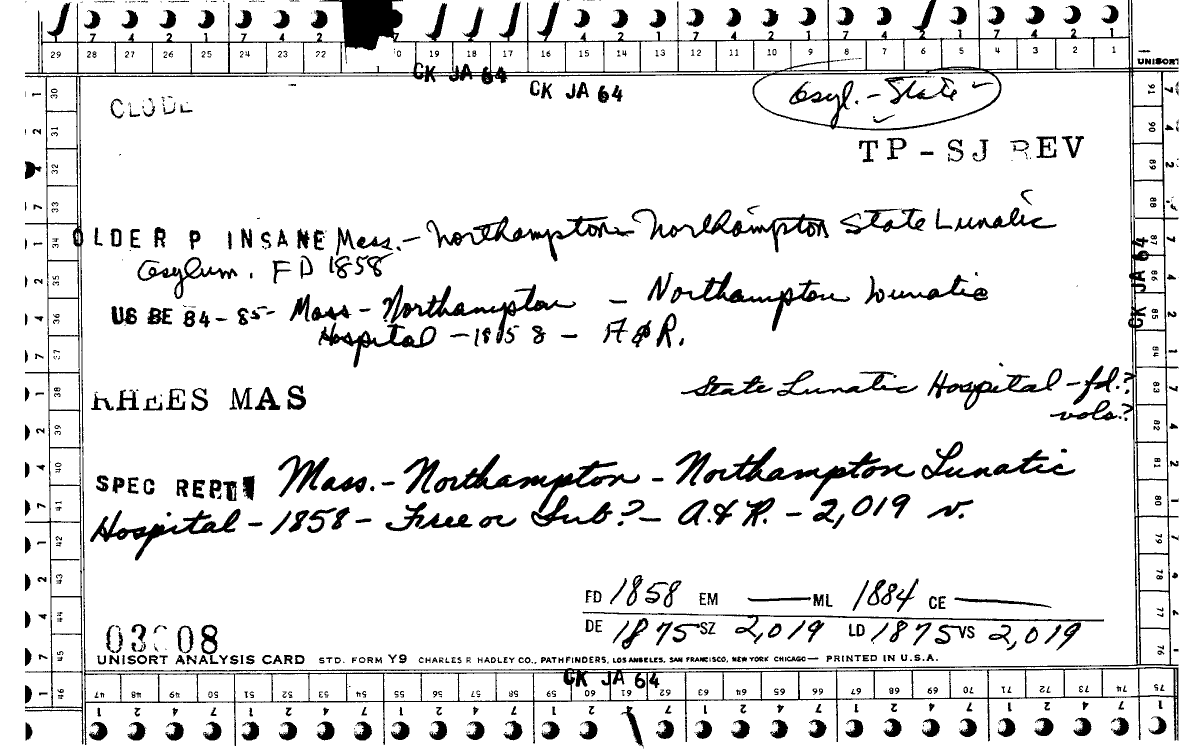 7 4 2 1 7 4 2 1 7 4 2 1 7 4 2 1 7 4 2 1
29 28 27 26 25 24 23 22 0 19 18 17 16 15 14 13 12 11 10 9 8 7 6 5 4 3 2 1
UNISORT
CK JA 64
CK JA 64
Asyl. - State -
TP-SJ REV
OLDER P INSANE Mass. - Northampton - Northampton State Lunatic
Asylum. FD 1858
US BE 84-85- Mass - Northampton - Northampton Lunatic
Hospital - 1858 - A & R.
CK JA 64
RHEES MAS
State Lunatic Hospital - fd.?
vols?
SPEC REPT Mass. - Northampton - Northampton Lunatic
Hospital - 1858 - Free or Sub? - A. & R. - 2,019 v.
FD 1858 EM — ML 1884 CE —
DE 1875 SZ 2,019 LD 1875 VS 2,019
UNISORT ANALYSIS CARD STD. FORM Y9 CHARLES R HADLEY CO., PATHFINDERS, LOS ANGELES, SAN FRANCISCO, NEW YORK CHICAGO— PRINTED IN U.S.A.
CK JA 64
46 47 48 49 50 51 52 53 54 55 56 57 58 59 60 61 62 63 64 65 66 67 68 69 70 71 72 73 74 75